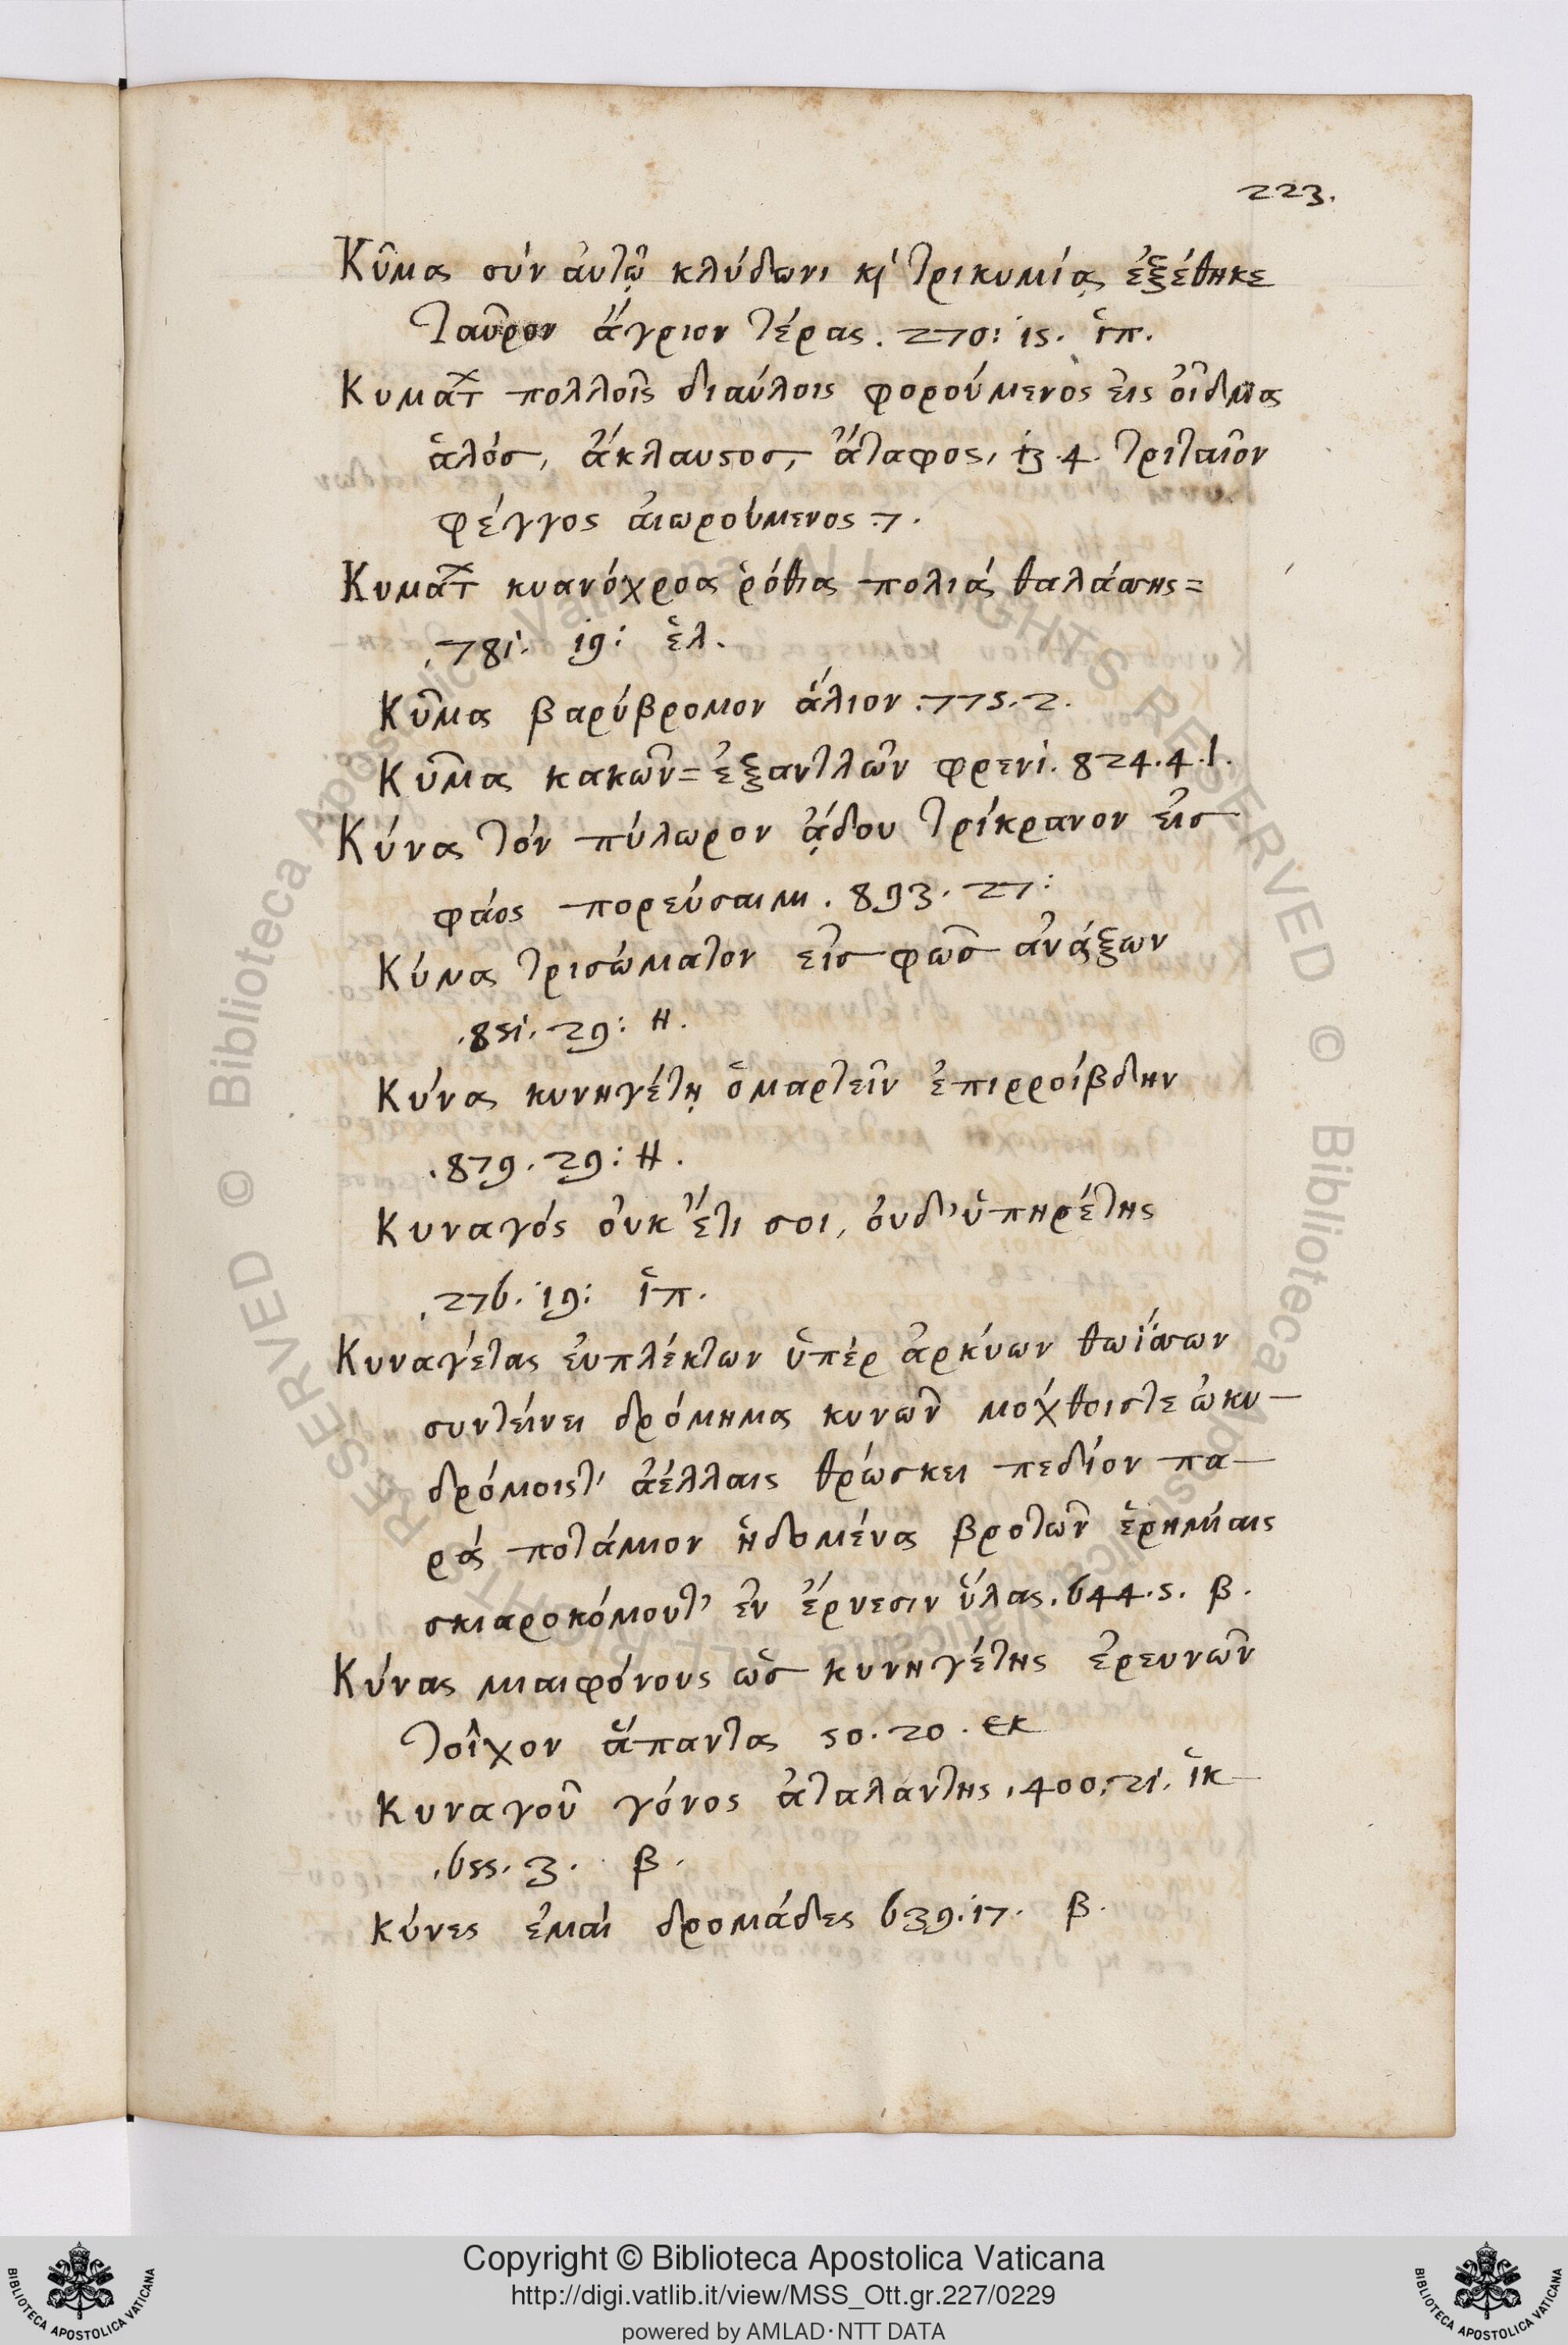 223.
Κῦμα σύν ἀυτῷ κλύδωνι κỳ τρικυμίᾳ ἐξέθηκε
ταῦρον ἄγριον τέρας. 270: 15. ἱπ.
Κυματ πολλοῖς διαύλοις φορούμενος εἰς οἶδμα
ἁλός, ἄκλαυστος, ἄταφος, 13.4. τριταῖον
φέγγος ἀιωρούμενος .7.
Κυματ κυανόχροα ῥόθια πολιᾶς θαλάσσης=
.781. 19: ἑλ.
Κῦμα βαρύβρομον ἅλιον .775.2.
Κῦμα κακῶν= ἐξαντλῶν φρενί. 824.4.Ι.
Κύνα τόν πύλωρον ᾅδου τρίκρανον εἰς
φάος πορεύσαιμι. 893. 27:
Κύνα τρισώματον εἰς φῶς ἀνάξων
.851. 29: Η.
Κύνας κυνηγέτῃ ὁμαρτεῖν ἐπιρροίβδην
.879. 29: Η.
Κυναγός ὀυκ ἔτι σοι, ὀυδ' ὑπηρέτης
.276. 19: ἱπ.
Κυναγέτας ἐυπλέκτων ὑπέρ ἀρκύων θωΰσσων
συντείνει δρόμημα κυνῶν μόχθοιστε ὠκυ-
δρόμοιστ' ἀέλλαις θρώσκει πεδίον πα-
ρά ποτάμιον ἡδομένα βροτῶν ἐρημίαις
σκιαροκόμουτ' ἐν ἔρνεσιν ὕλας. 644.5. β.
Κύνας μιαιφόνους ὡς κυνηγέτης ἐρευνῶν
τοῖχον ἅπαντα 50.20. εκ
Κυναγοῦ γόνος ἀταλάντης .400.21. ἱκ-
.655. 3. β.
Κύνες ἐμαί δρομάδες 639.17. β.
© Biblioteca Apostolica Vaticana ALL RIGHTS RESERVED
© Biblioteca Apostolica Vaticana ALL RIGHTS RESERVED
BIBLIOTECA APOSTOLICA VATICANA
Copyright © Biblioteca Apostolica Vaticana
http://digi.vatlib.it/view/MSS_Ott.gr.227/0229
powered by AMLAD·NTT DATA
BIBLIOTECA APOSTOLICA VATICANA